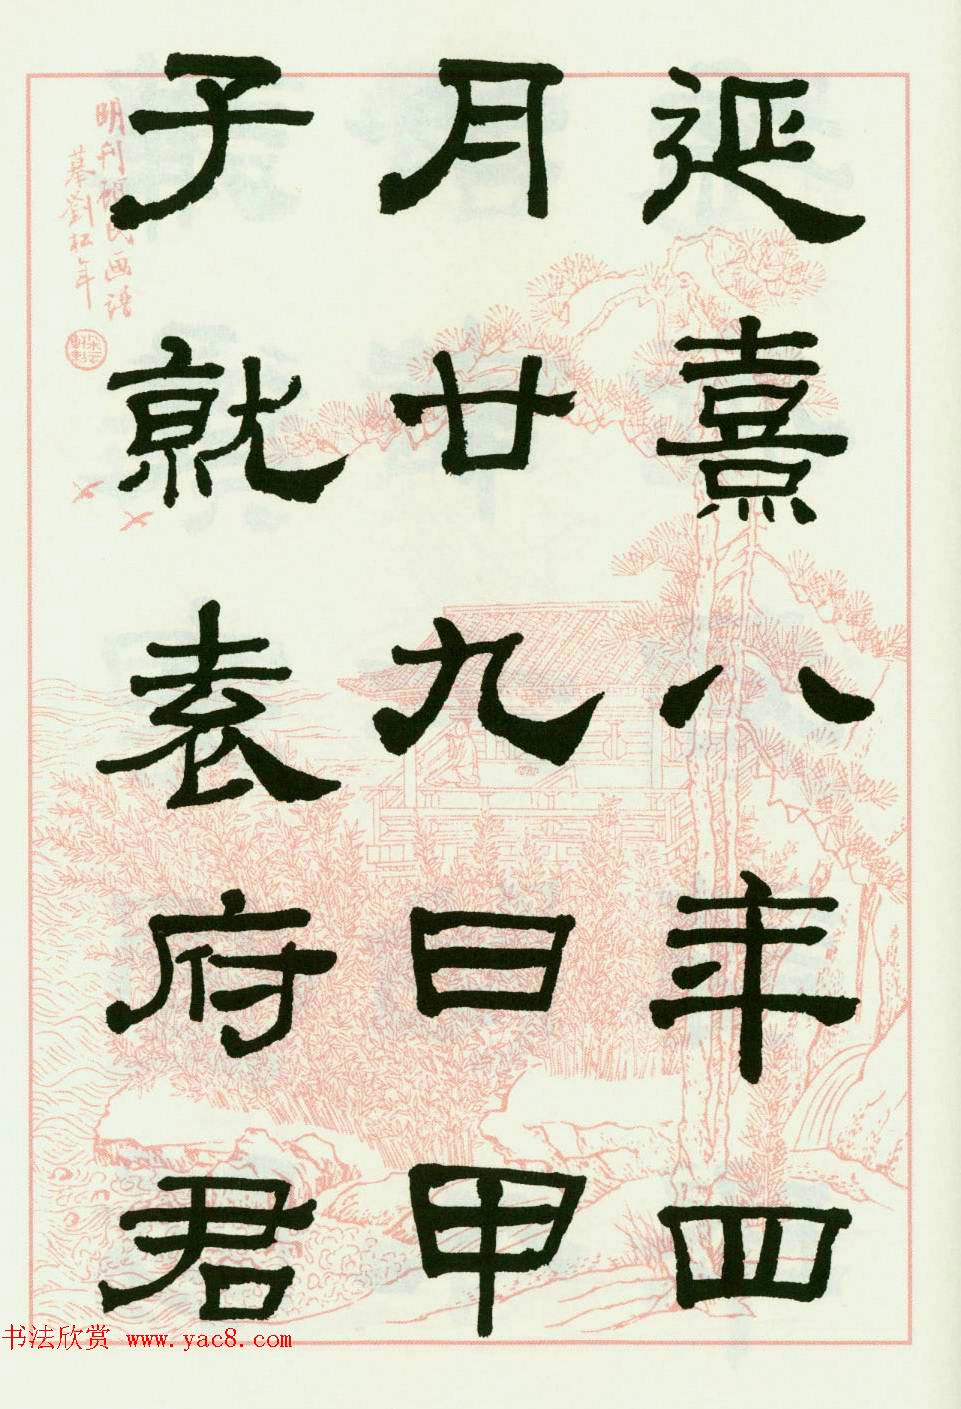 延熹八年四
月廿九日甲
子就袁府君
明刊顧氏画譜
摹劉松年
书法欣赏 www.yac8.com